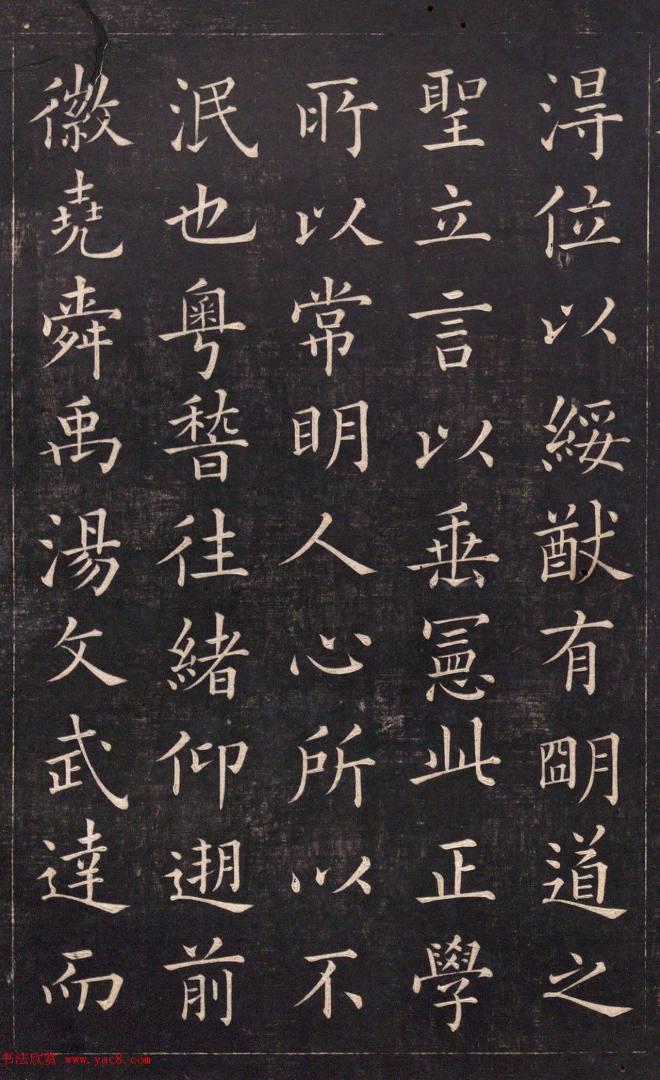 淂位以綏猷有明道之
聖立言以垂憲此正學
所以常明人心所以不
泯也粤稽往緒仰遡前
徽堯舜禹湯文武達而
书法欣赏 www.yac8.com